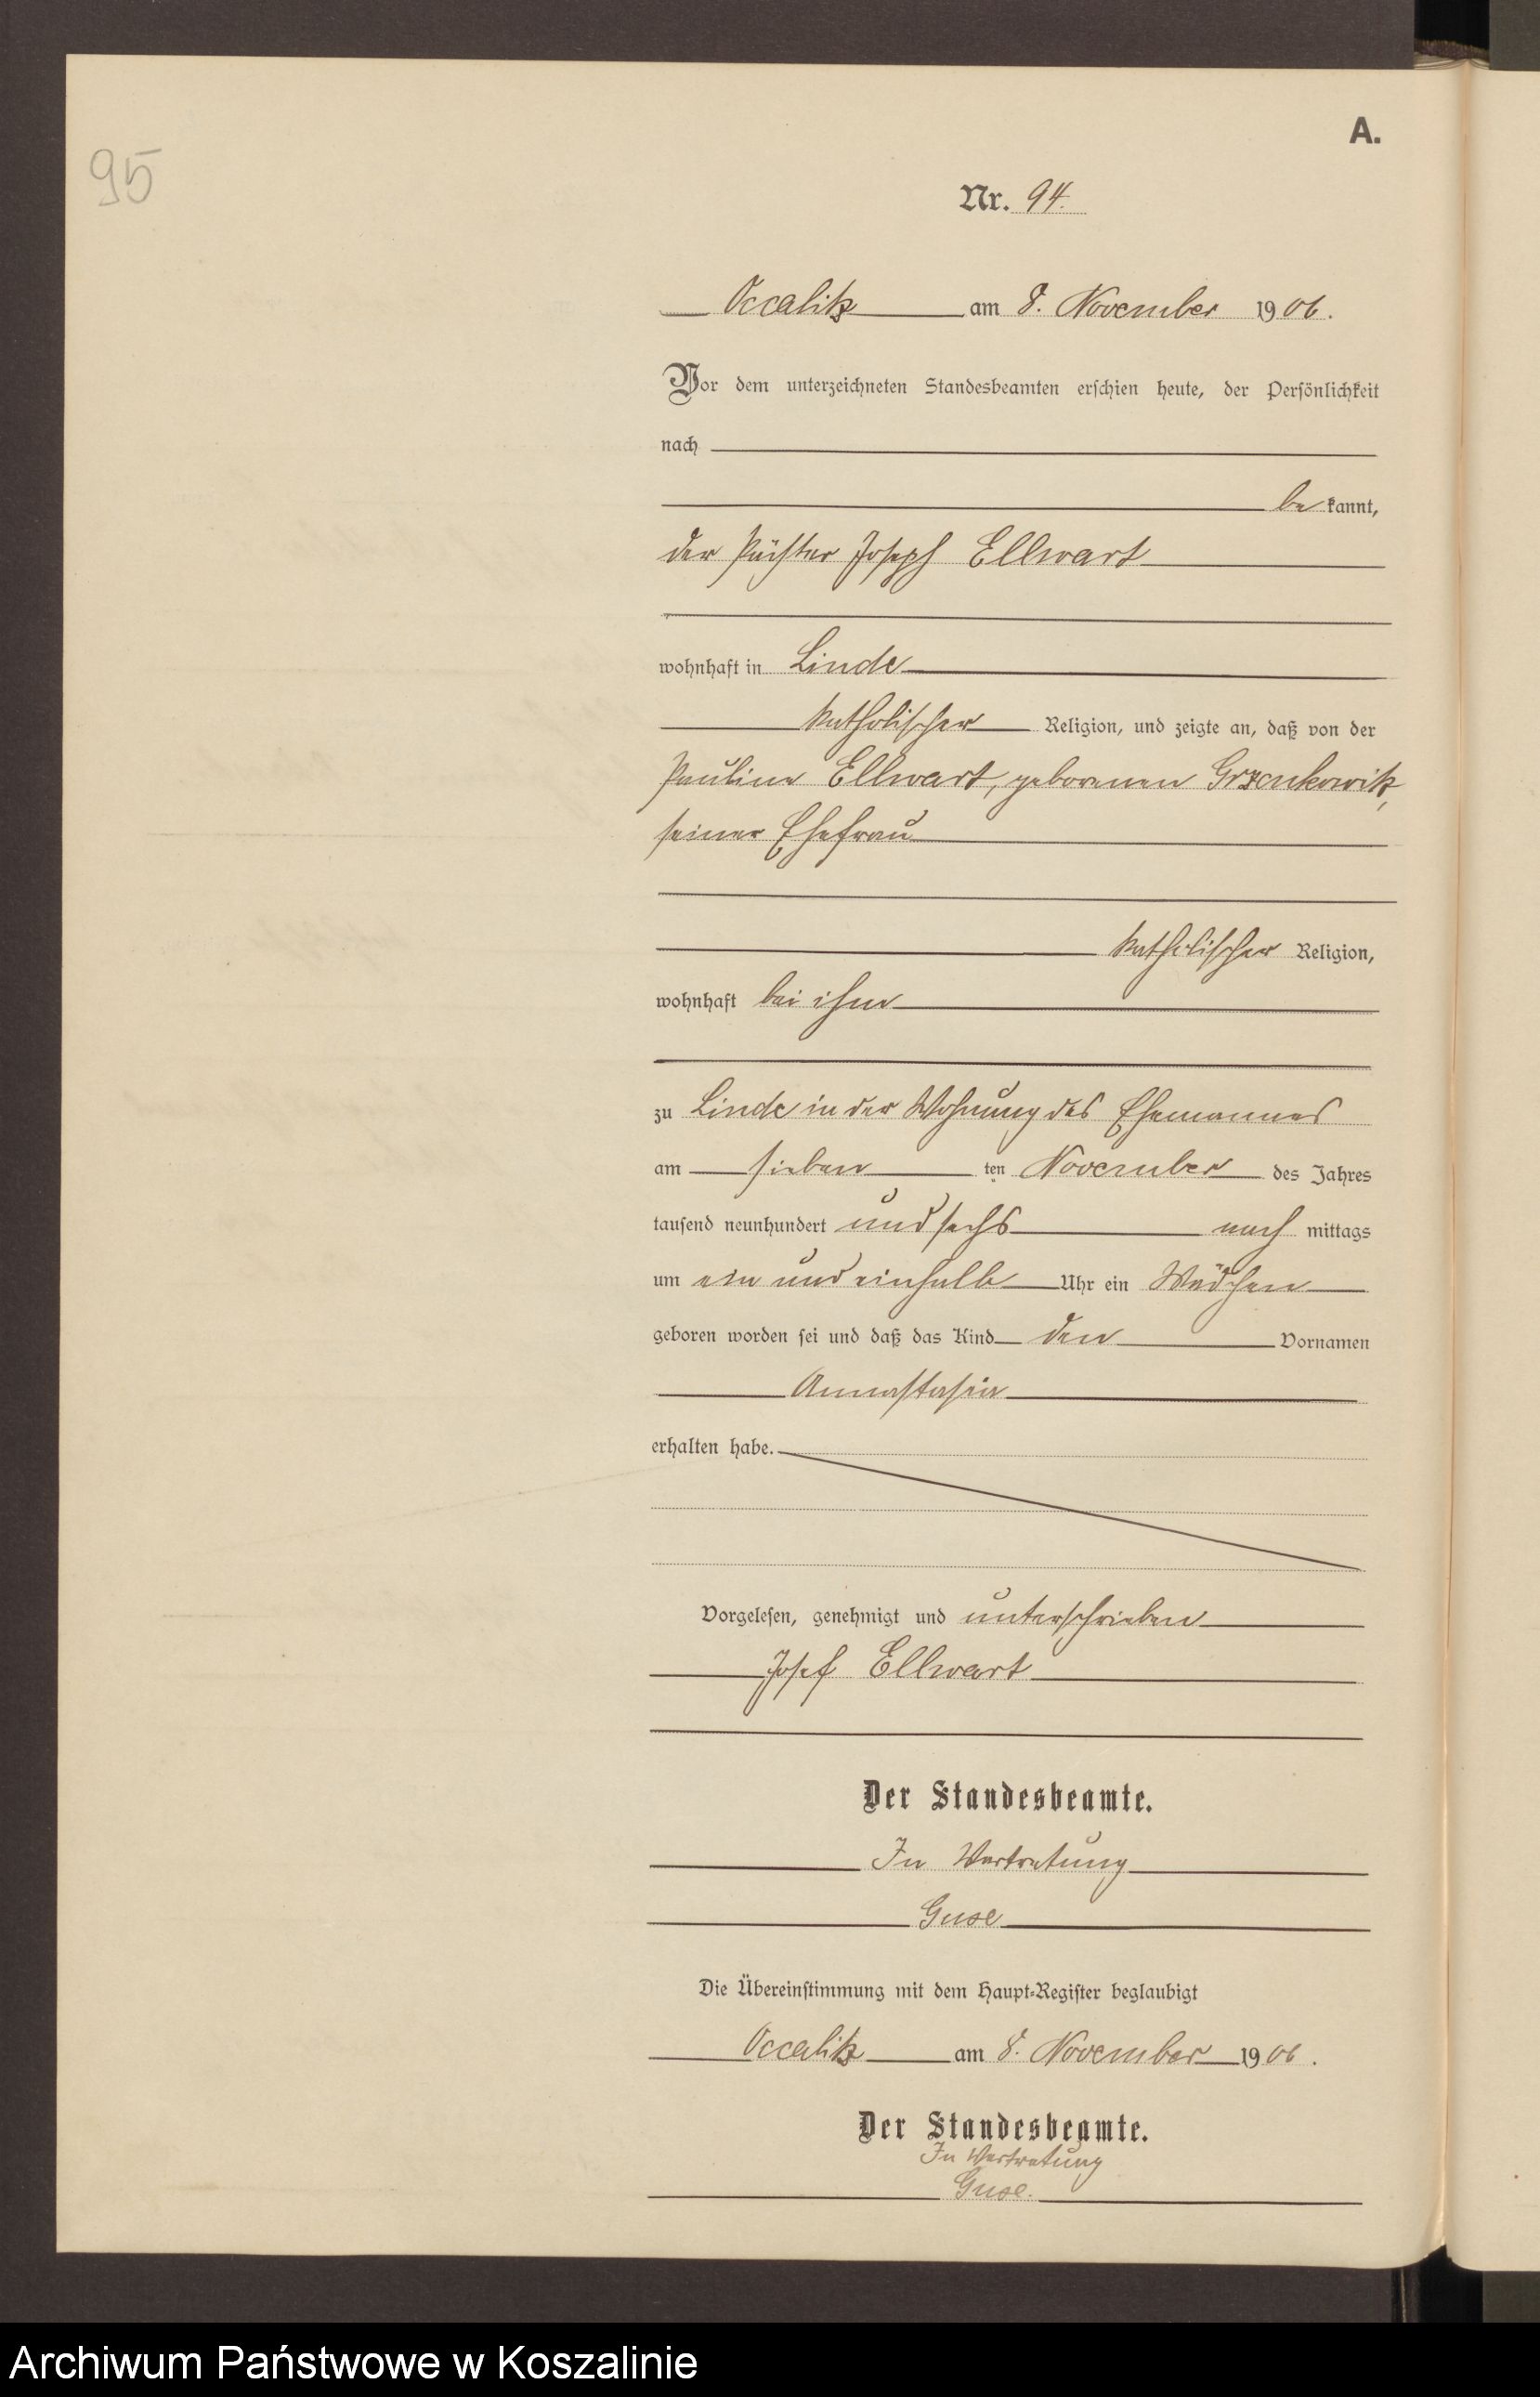 A.
95
Nr. 94.
Occalitz am 8. November 1906.
Vor dem unterzeichneten Standesbeamten erschien heute, der Persönlichkeit
nach
bekannt,
der Pächter Joseph Ellwart
wohnhaft in Linde
katholischer Religion, und zeigte an, daß von der
Pauline Ellwart, geborenen Grzenkowitz,
seiner Ehefrau
katholischer Religion,
wohnhaft bei ihm
zu Linde in der Wohnung des Ehemannes
am sieben ten November des Jahres
tausend neunhundert und sechs nach mittags
um ein und einhalb Uhr ein Mädchen
geboren worden sei und daß das Kind den Vornamen
Annastasia
erhalten habe.
Vorgelesen, genehmigt und unterschrieben
Josef Ellwart
Der Standesbeamte.
In Vertretung
Guse
Die Übereinstimmung mit dem Haupt-Register beglaubigt
Occalitz am 8. November 1906.
Der Standesbeamte.
In Vertretung
Guse.
Archiwum Państwowe w Koszalinie